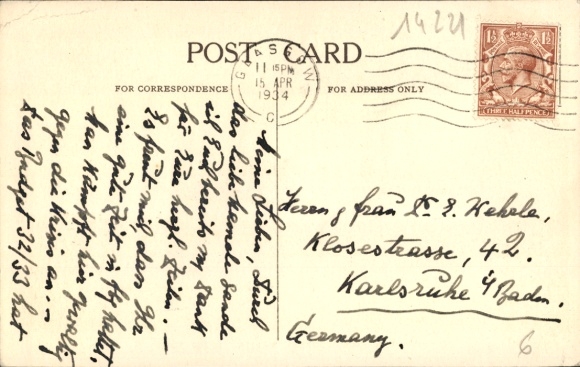 14221
POST CARD
FOR CORRESPONDENCE
FOR ADDRESS ONLY
GLASGOW
11 15PM
15 APR
1934
C
THREE HALFPENCE
Meine Lieben, Durch
das liebe
ich Euch bereits m. Dank
für Eure herzl. Zeilen. —
Es freut mich, dass Ihr
eine gute Zeit in hattet.
Man kämpft hier
gegen die an. —
Das Budget 32/33 hat
Herrn & Frau Dr. E. Wehrle,
Klosestrasse, 42.
Karlsruhe i/Baden.
Germany.
6